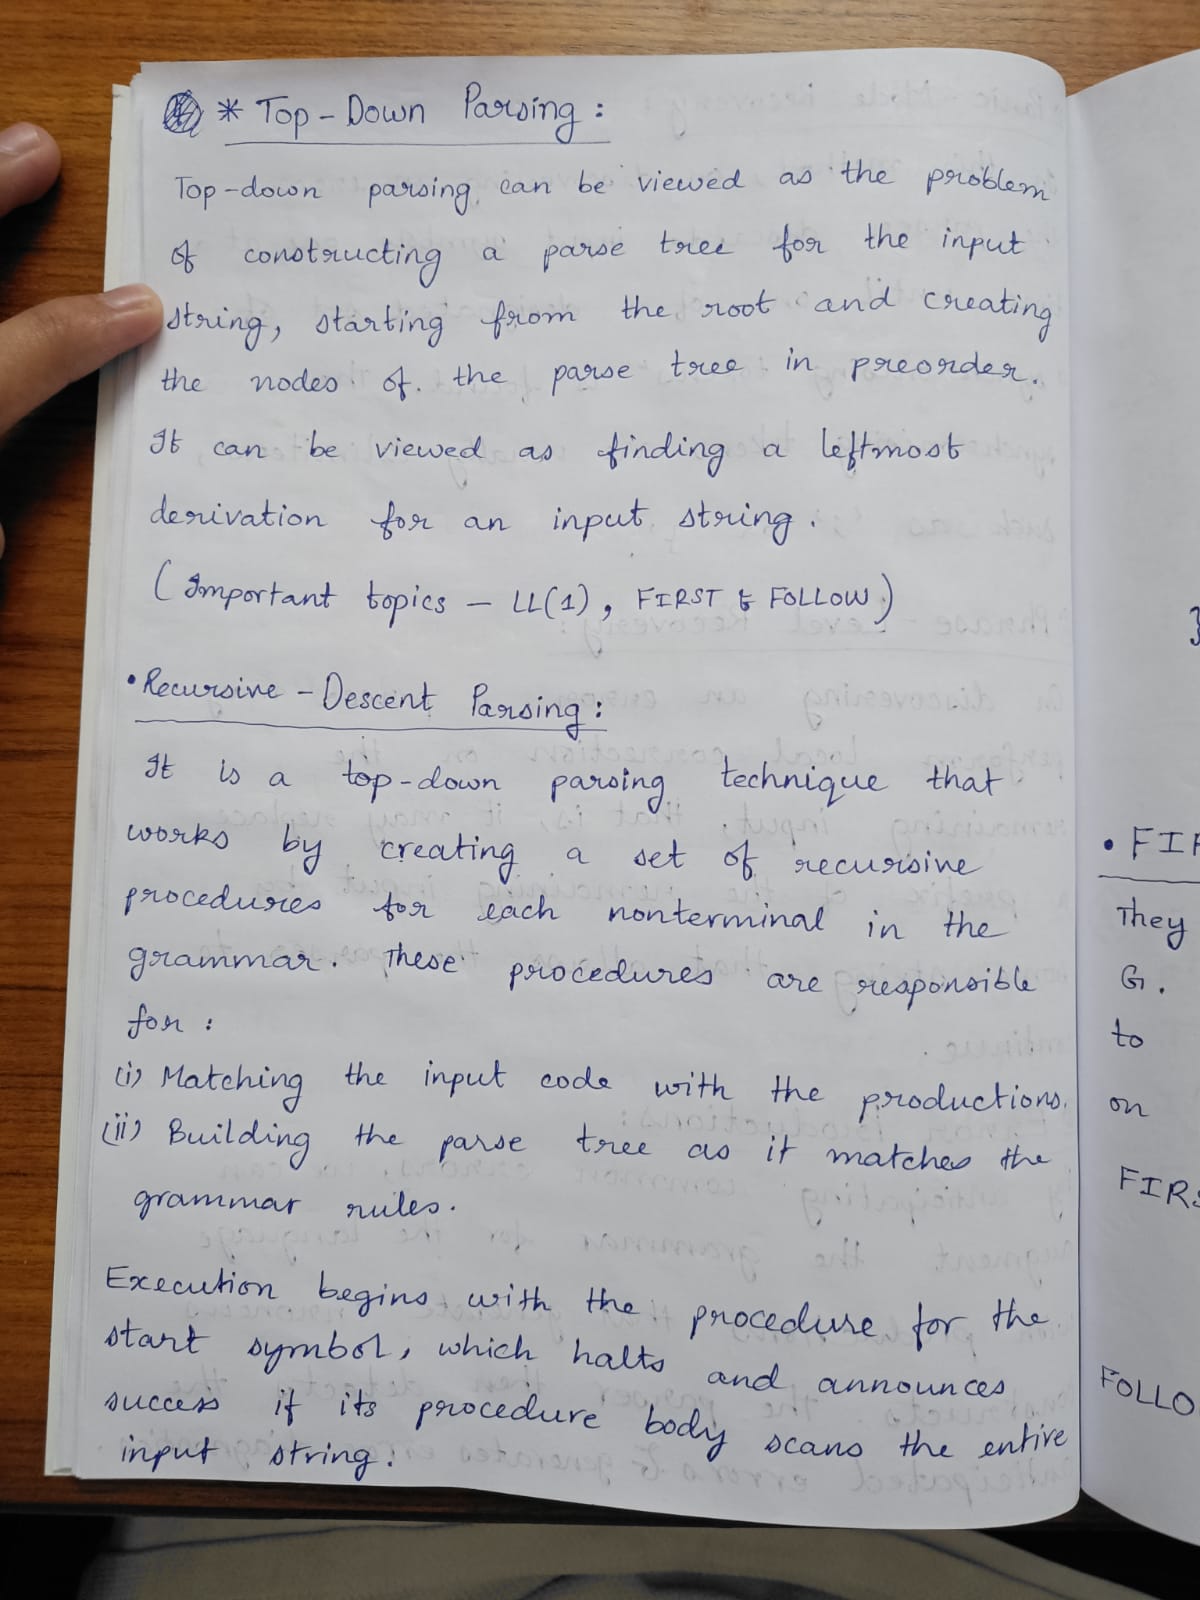 * Top-Down Parsing:
Top-down parsing can be viewed as the problem
of constructing a parse tree for the input
string, starting from the root and creating
the nodes of the parse tree in preorder.
It can be viewed as finding a leftmost
derivation for an input string.
(Important topics - LL(1), FIRST & FOLLOW)
• Recursive-Descent Parsing:
It is a top-down parsing technique that
works by creating a set of recursive
procedures for each nonterminal in the
grammar. These procedures are responsible
for:
(i) Matching the input code with the productions.
(ii) Building the parse tree as it matches the
grammar rules.
Execution begins with the procedure for the
start symbol, which halts and announces
success if its procedure body scans the entire
input string.
}
• FIR
They
G.
to
on
FIRS
FOLLO